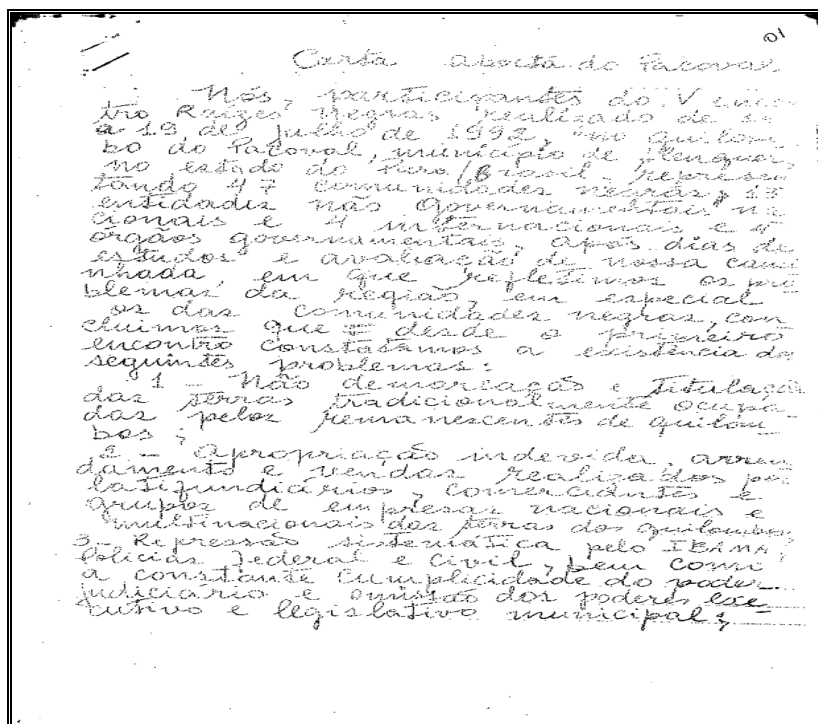 01
Carta aberta do Pacoval
Nós, participantes do V encon-
tro Raízes Negras realizado de
a 19 de julho de 1992, no quilom-
bo do Pacoval, município de Alenquer,
no estado do Pará/Brasil - represen
tando 47 comunidades negras, 13
entidades não governamentais na
cionais e 4 internacionais e 4
órgãos governamentais. Após dias de
estudos e avaliação de nossa cami
nhada, em que refletimos os pro
blemas da região, em especial
os das comunidades negras, con
cluimos que desde o primeiro
encontro constatamos a existência dos
seguintes problemas:
1 - Não demarcação e titulação
das terras tradicionalmente ocupa
das pelos remanescentes de quilom
bos;
2 - Apropriação indevida, arren
damento e vendas realizados por
latifundiários, comerciantes e
grupos de empresas nacionais e
multinacionais das terras dos quilombos;
3 - Repressão sistemática pelo IBAMA,
Polícias Federal e Civil, bem como
a constante cumplicidade do poder
judiciário e omissão dos poderes exe-
cutivo e legislativo municipal;